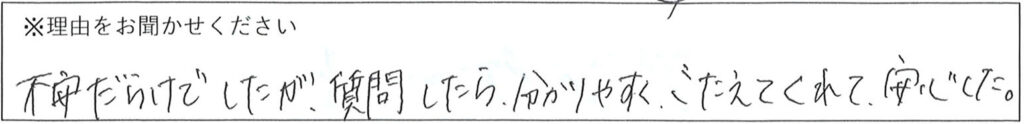 ※理由をお聞かせください
不安だらけでしたが、質問したら、分かりやすく、こたえてくれて、安心した。